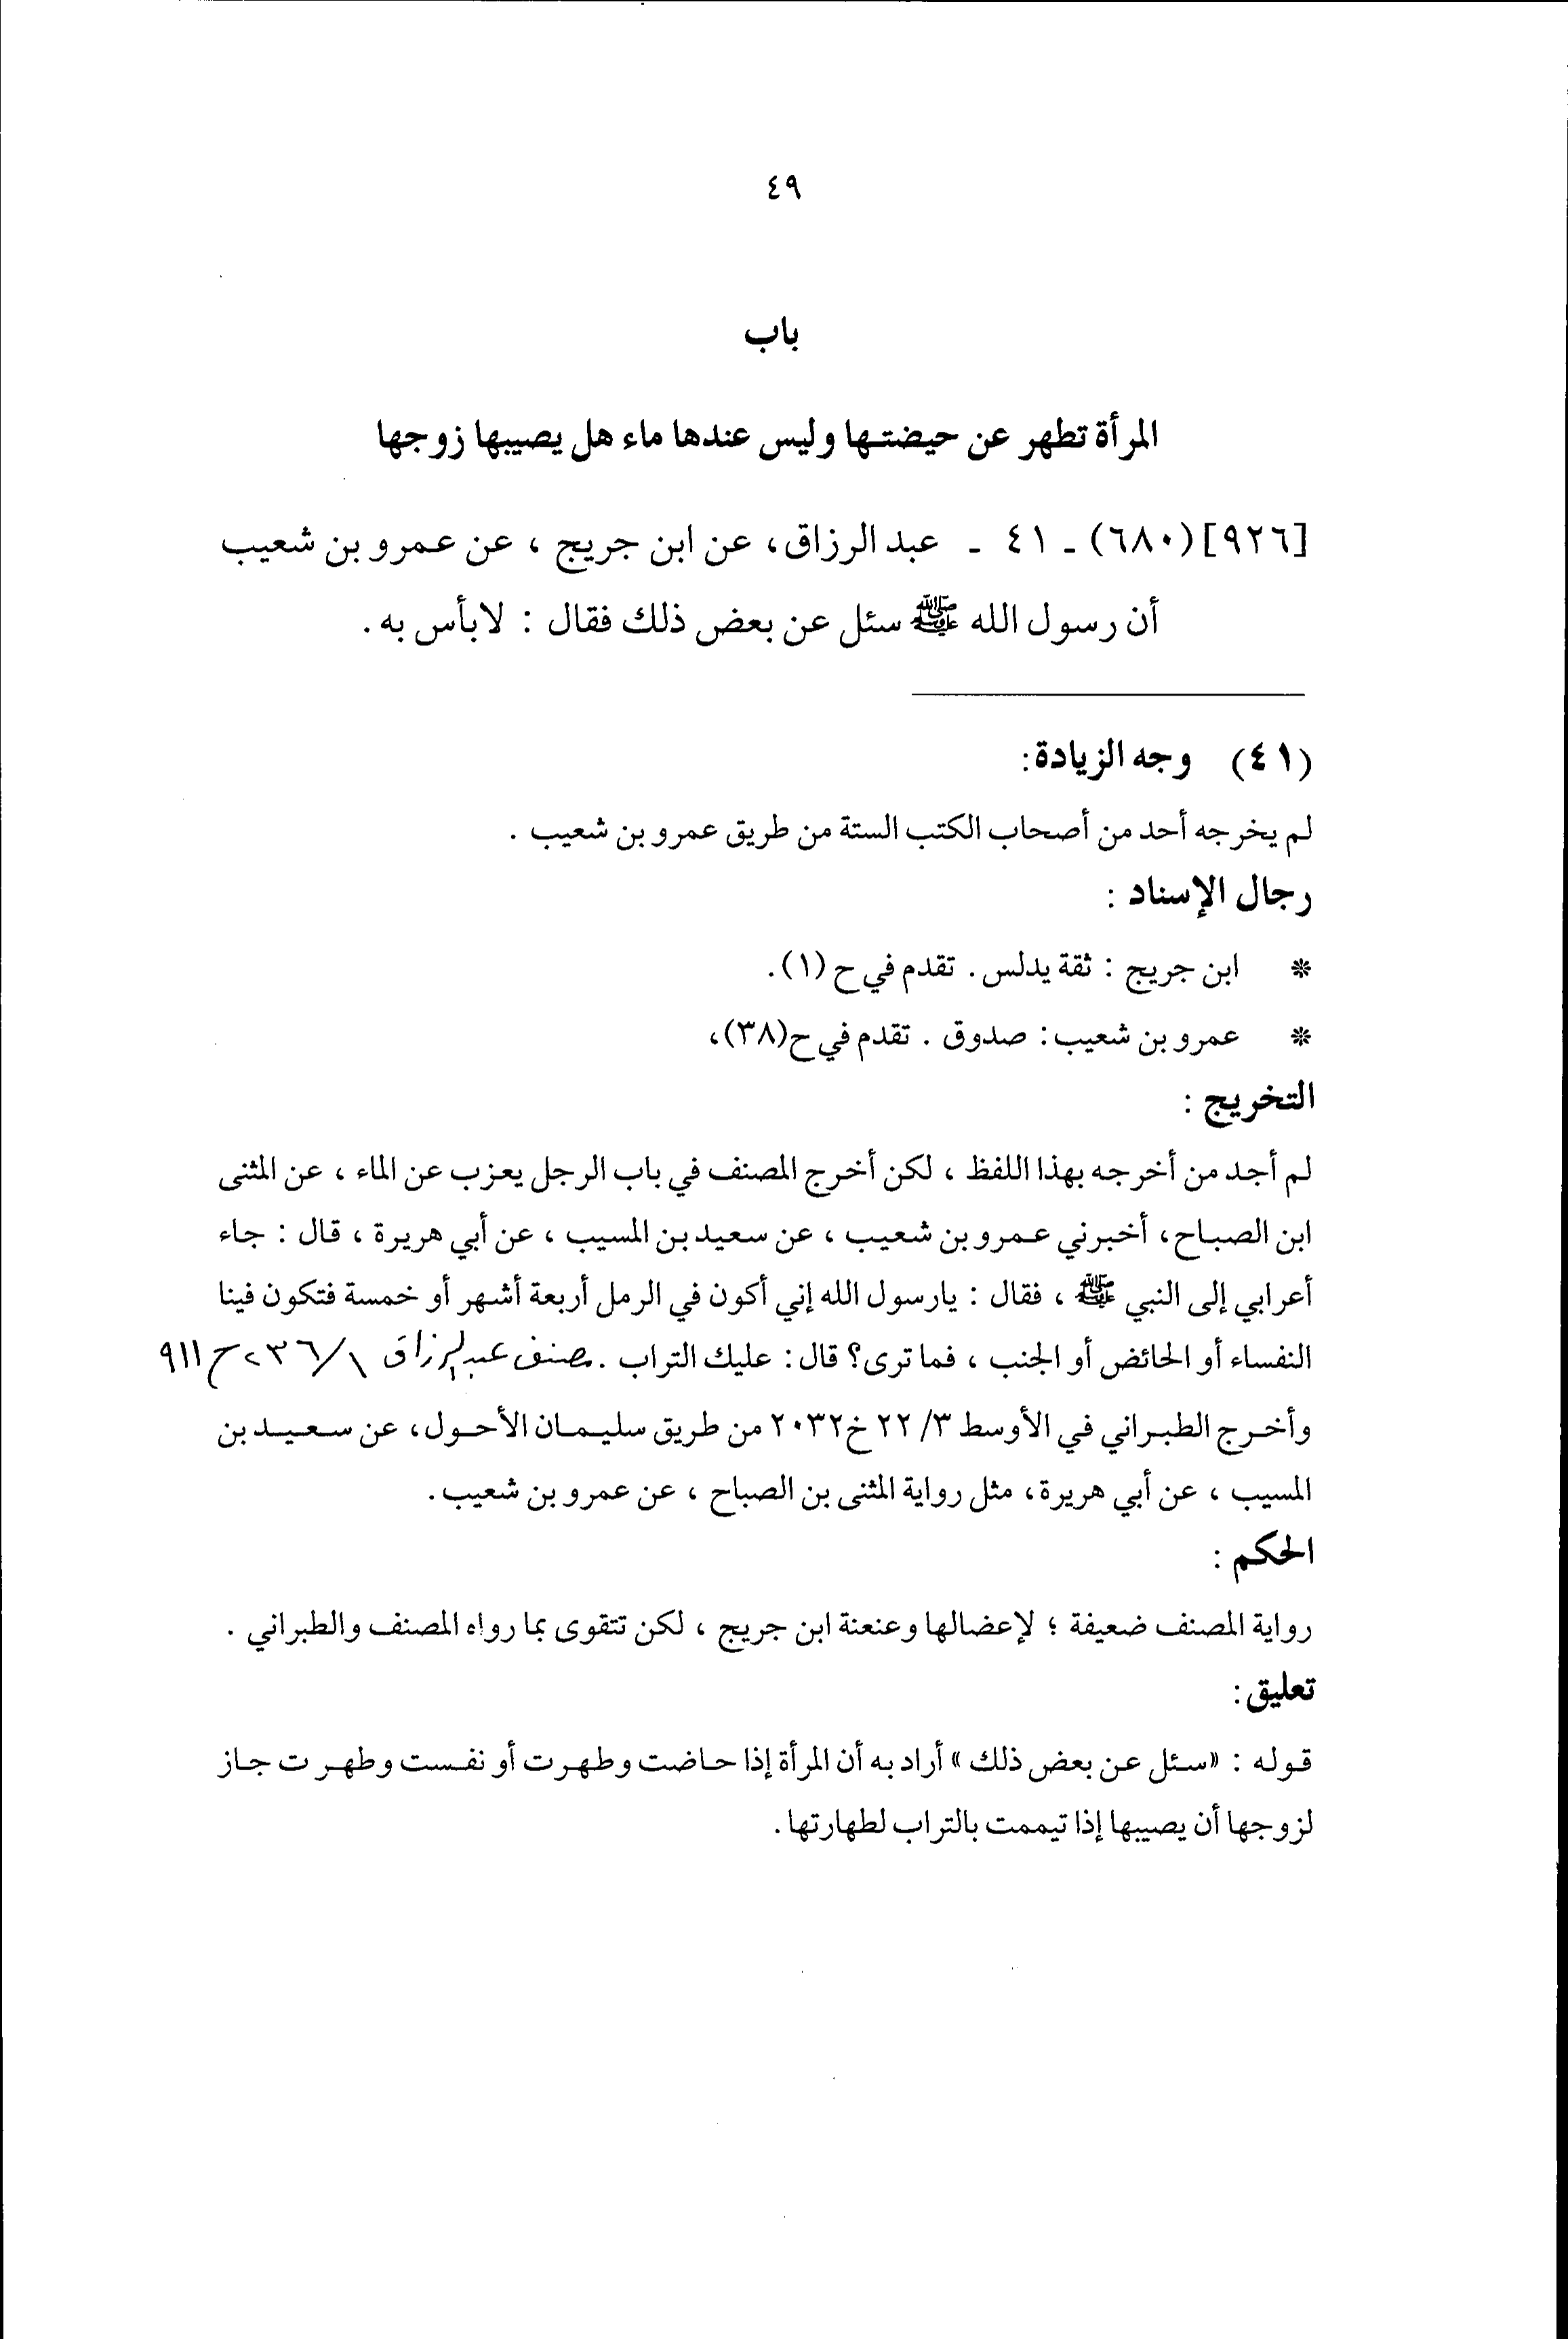 ٤٩
باب
المرأة تطهر عن حيضتها وليس عندها ماء هل يصيبها زوجها
[٩٢٦] (٦٨٠) ـ ٤١ ـ عبد الرزاق، عن ابن جريج ، عن عمرو بن شعيب
أن رسول الله ﷺ سئل عن بعض ذلك فقال : لابأس به .
(٤١) وجه الزيادة:
لم يخرجه أحد من أصحاب الكتب الستة من طريق عمرو بن شعيب .
رجال الإسناد :
* ابن جريج : ثقة يدلس . تقدم في ح (١).
* عمرو بن شعيب: صدوق . تقدم في ح(٣٨)،
التخريج :
لم أجد من أخرجه بهذا اللفظ ، لكن أخرج المصنف في باب الرجل يعزب عن الماء ، عن المثنى
ابن الصباح، أخبرني عمرو بن شعيب ، عن سعيد بن المسيب ، عن أبي هريرة ، قال : جاء
أعرابي إلى النبي ﷺ ، فقال : يارسول الله إني أكون في الرمل أربعة أشهر أو خمسة فتكون فينا
النفساء أو الحائض أو الجنب ، فما ترى؟ قال: عليك التراب . مصنف عبد الرزاق ١/٢٣٦ ح ٩١١
وأخرج الطبراني في الأوسط ٣/ ٢٢ خ٢٠٣٢ من طريق سليمان الأحول، عن سعيد بن
المسيب ، عن أبي هريرة، مثل رواية المثنى بن الصباح ، عن عمرو بن شعيب.
الحكم :
رواية المصنف ضعيفة ؛ لإعضالها وعنعنة ابن جريج ، لكن تتقوى بما رواه المصنف والطبراني .
تعليق:
قوله : «سئل عن بعض ذلك» أراد به أن المرأة إذا حاضت وطهرت أو نفست وطهرت جاز
لزوجها أن يصيبها إذا تيممت بالتراب لطهارتها.